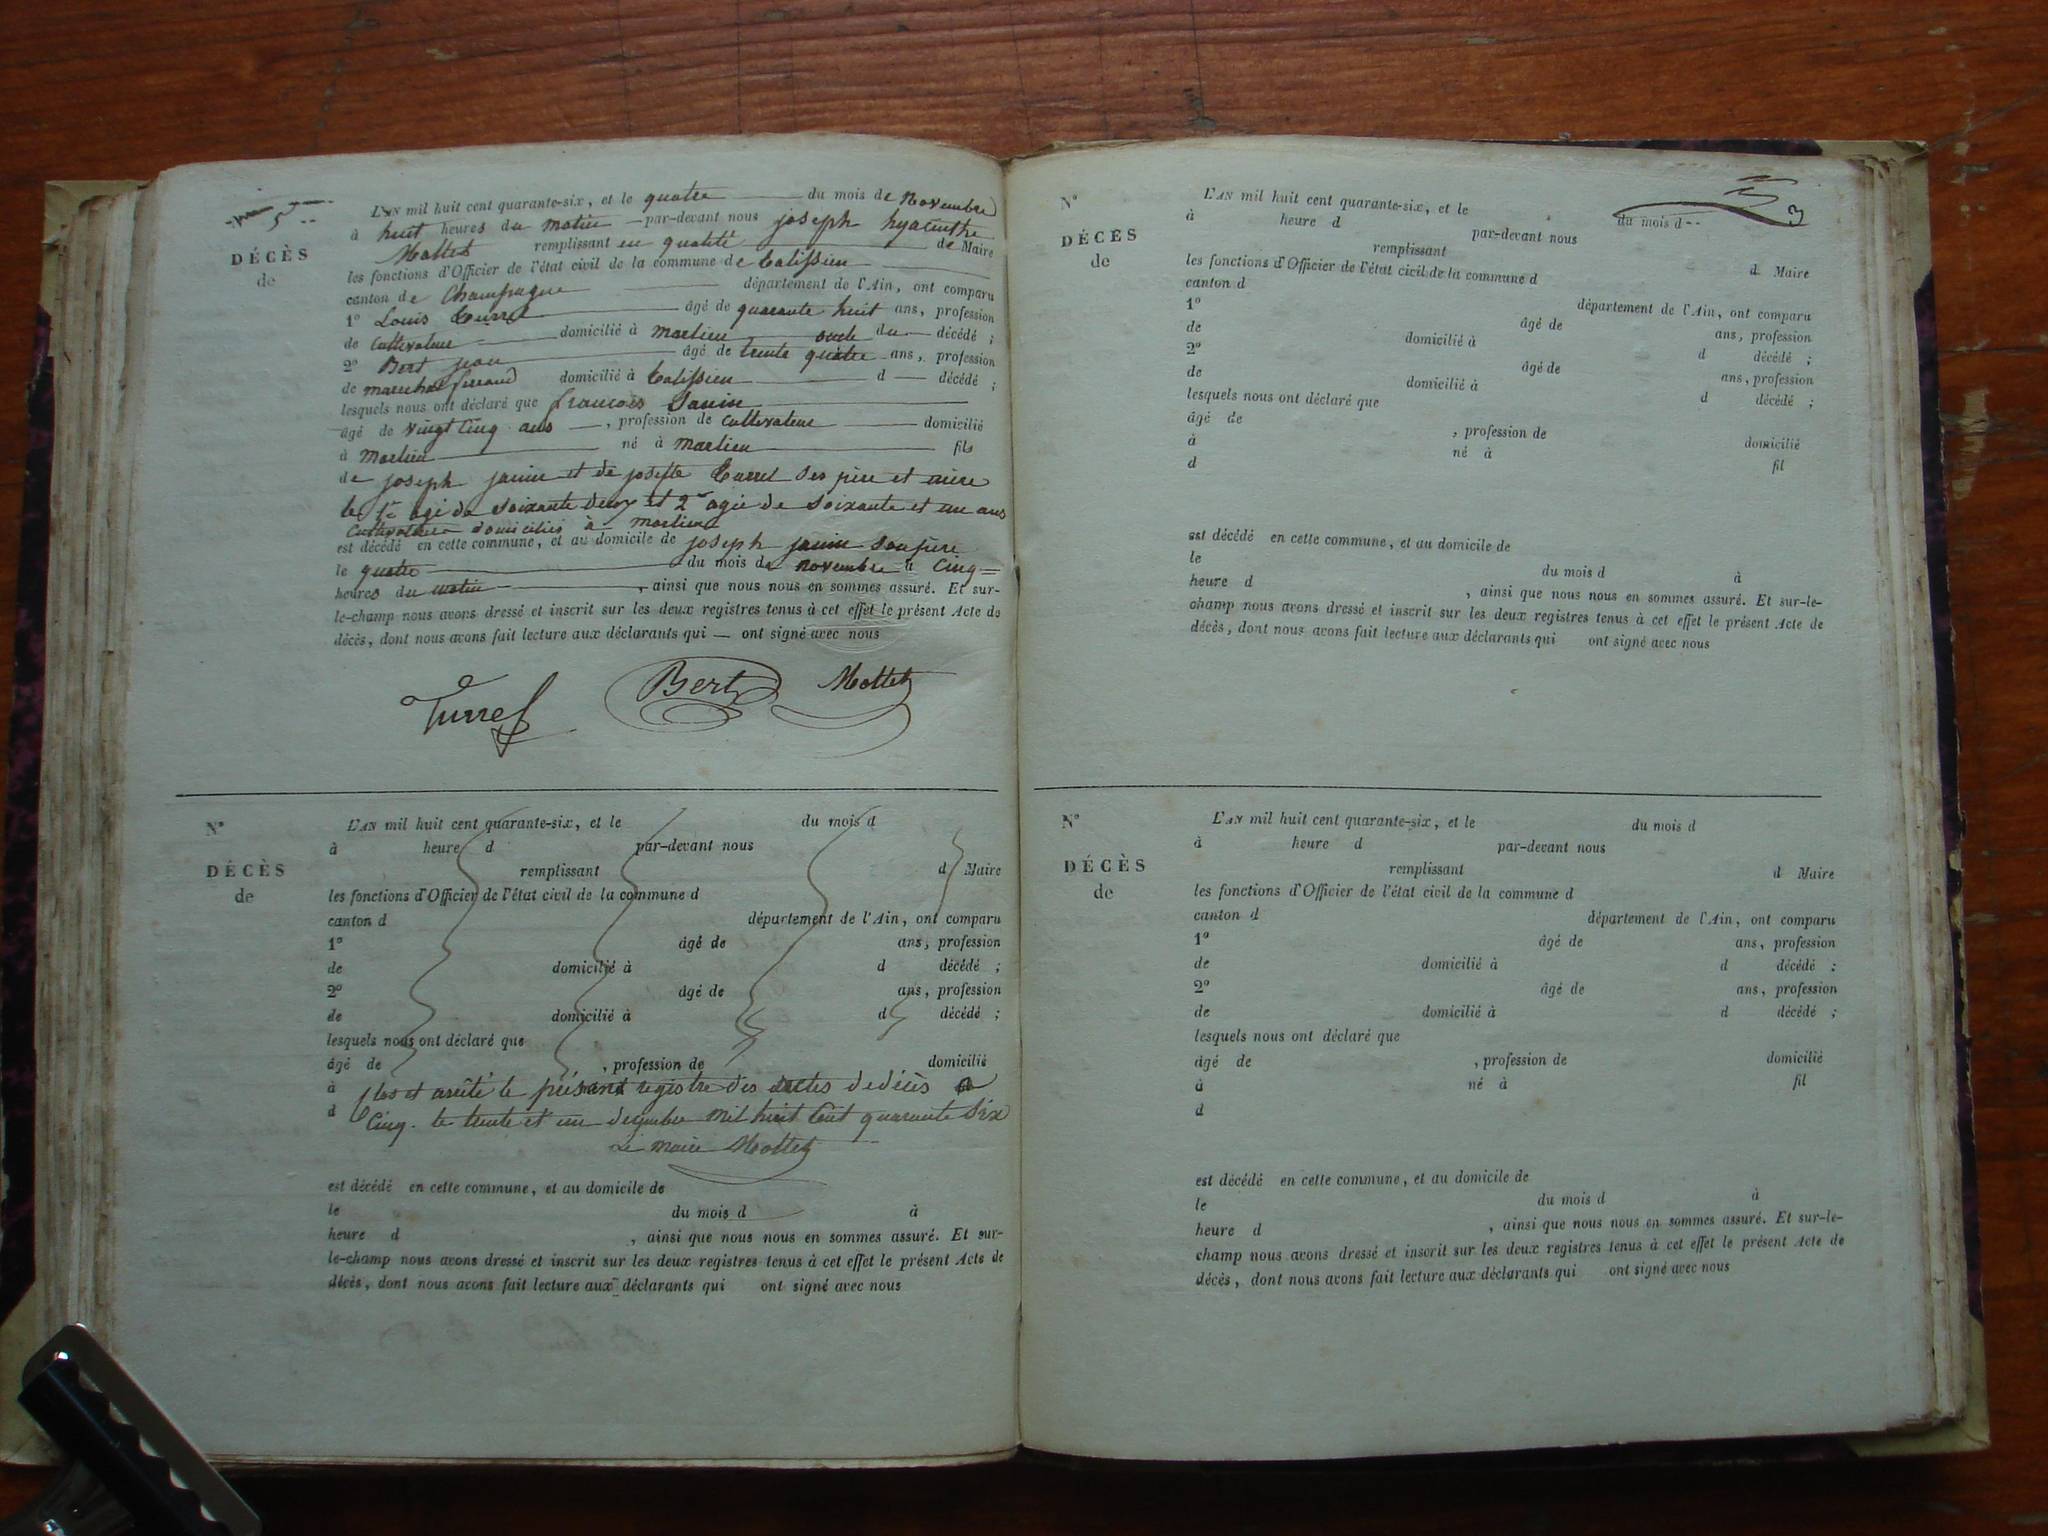 5
DÉCÈS
de
L'AN mil huit cent quarante-six, et le quatre du mois de novembre
à huit heures du matin par-devant nous joseph hyacinthe
Mottet remplissant en qualité de Maire
les fonctions d'Officier de l'état civil de la commune de talissieu
canton de Champagne département de l'Ain, ont comparu
1º Louis turrel âgé de quarante huit ans, profession
de Cultivateur domicilié à marlieu oncle du décédé ;
2º Bert jean âgé de trente quatre ans, profession
de marechal ferrand domicilié à talissieu d décédé ;
lesquels nous ont déclaré que françois Janin
âgé de vingt Cinq ans , profession de Cultivateur domicilié
à marlieu né à marlieu fils
de joseph janin et de josefte turrel Ses père et mère
le 1er agé de Soixante deux et 2e agée de Soixante et un ans
Cultivateurs domiciliés à marlieu
est décédé en cette commune, et au domicile de joseph janin Son père
le quatre du mois de novembre à Cinq
heures du matin , ainsi que nous nous en sommes assuré. Et sur-
le-champ nous avons dressé et inscrit sur les deux registres tenus à cet effet le présent Acte de
décès, dont nous avons fait lecture aux déclarants qui ont signé avec nous
Turrel Bert Mottet
Nº
DÉCÈS
de
L'AN mil huit cent quarante-six, et le du mois d
à heure d par-devant nous
remplissant d Maire
les fonctions d'Officier de l'état civil de la commune d
canton d département de l'Ain, ont comparu
1º âgé de ans, profession
de domicilié à d décédé ;
2º âgé de ans, profession
de domicilié à d décédé ;
lesquels nous ont déclaré que
âgé de , profession de domicilié
à Clos et arrêté le présent registre des actes de décès a
d Cinq. le trente et un decembre mil huit Cent quarante Six
Le maire Mottet
est décédé en cette commune, et au domicile de
le du mois d à
heure d , ainsi que nous nous en sommes assuré. Et sur-
le-champ nous avons dressé et inscrit sur les deux registres tenus à cet effet le présent Acte de
décès, dont nous avons fait lecture aux déclarants qui ont signé avec nous
3
Nº
DÉCÈS
de
L'AN mil huit cent quarante-six, et le du mois d
à heure d par-devant nous
remplissant d Maire
les fonctions d'Officier de l'état civil de la commune d
canton d département de l'Ain, ont comparu
1º âgé de ans, profession
de domicilié à d décédé ;
2º âgé de ans, profession
de domicilié à d décédé ;
lesquels nous ont déclaré que
âgé de , profession de domicilié
à né à fil
d
est décédé en cette commune, et au domicile de
le du mois d à
heure d , ainsi que nous nous en sommes assuré. Et sur-le-
champ nous avons dressé et inscrit sur les deux registres tenus à cet effet le présent Acte de
décès, dont nous avons fait lecture aux déclarants qui ont signé avec nous
Nº
DÉCÈS
de
L'AN mil huit cent quarante-six, et le du mois d
à heure d par-devant nous
remplissant d Maire
les fonctions d'Officier de l'état civil de la commune d
canton d département de l'Ain, ont comparu
1º âgé de ans, profession
de domicilié à d décédé :
2º âgé de ans, profession
de domicilié à d décédé ;
lesquels nous ont déclaré que
âgé de , profession de domicilié
à né à fil
d
est décédé en cette commune, et au domicile de
le du mois d à
heure d , ainsi que nous nous en sommes assuré. Et sur-le-
champ nous avons dressé et inscrit sur les deux registres tenus à cet effet le présent Acte de
décès, dont nous avons fait lecture aux déclarants qui ont signé avec nous